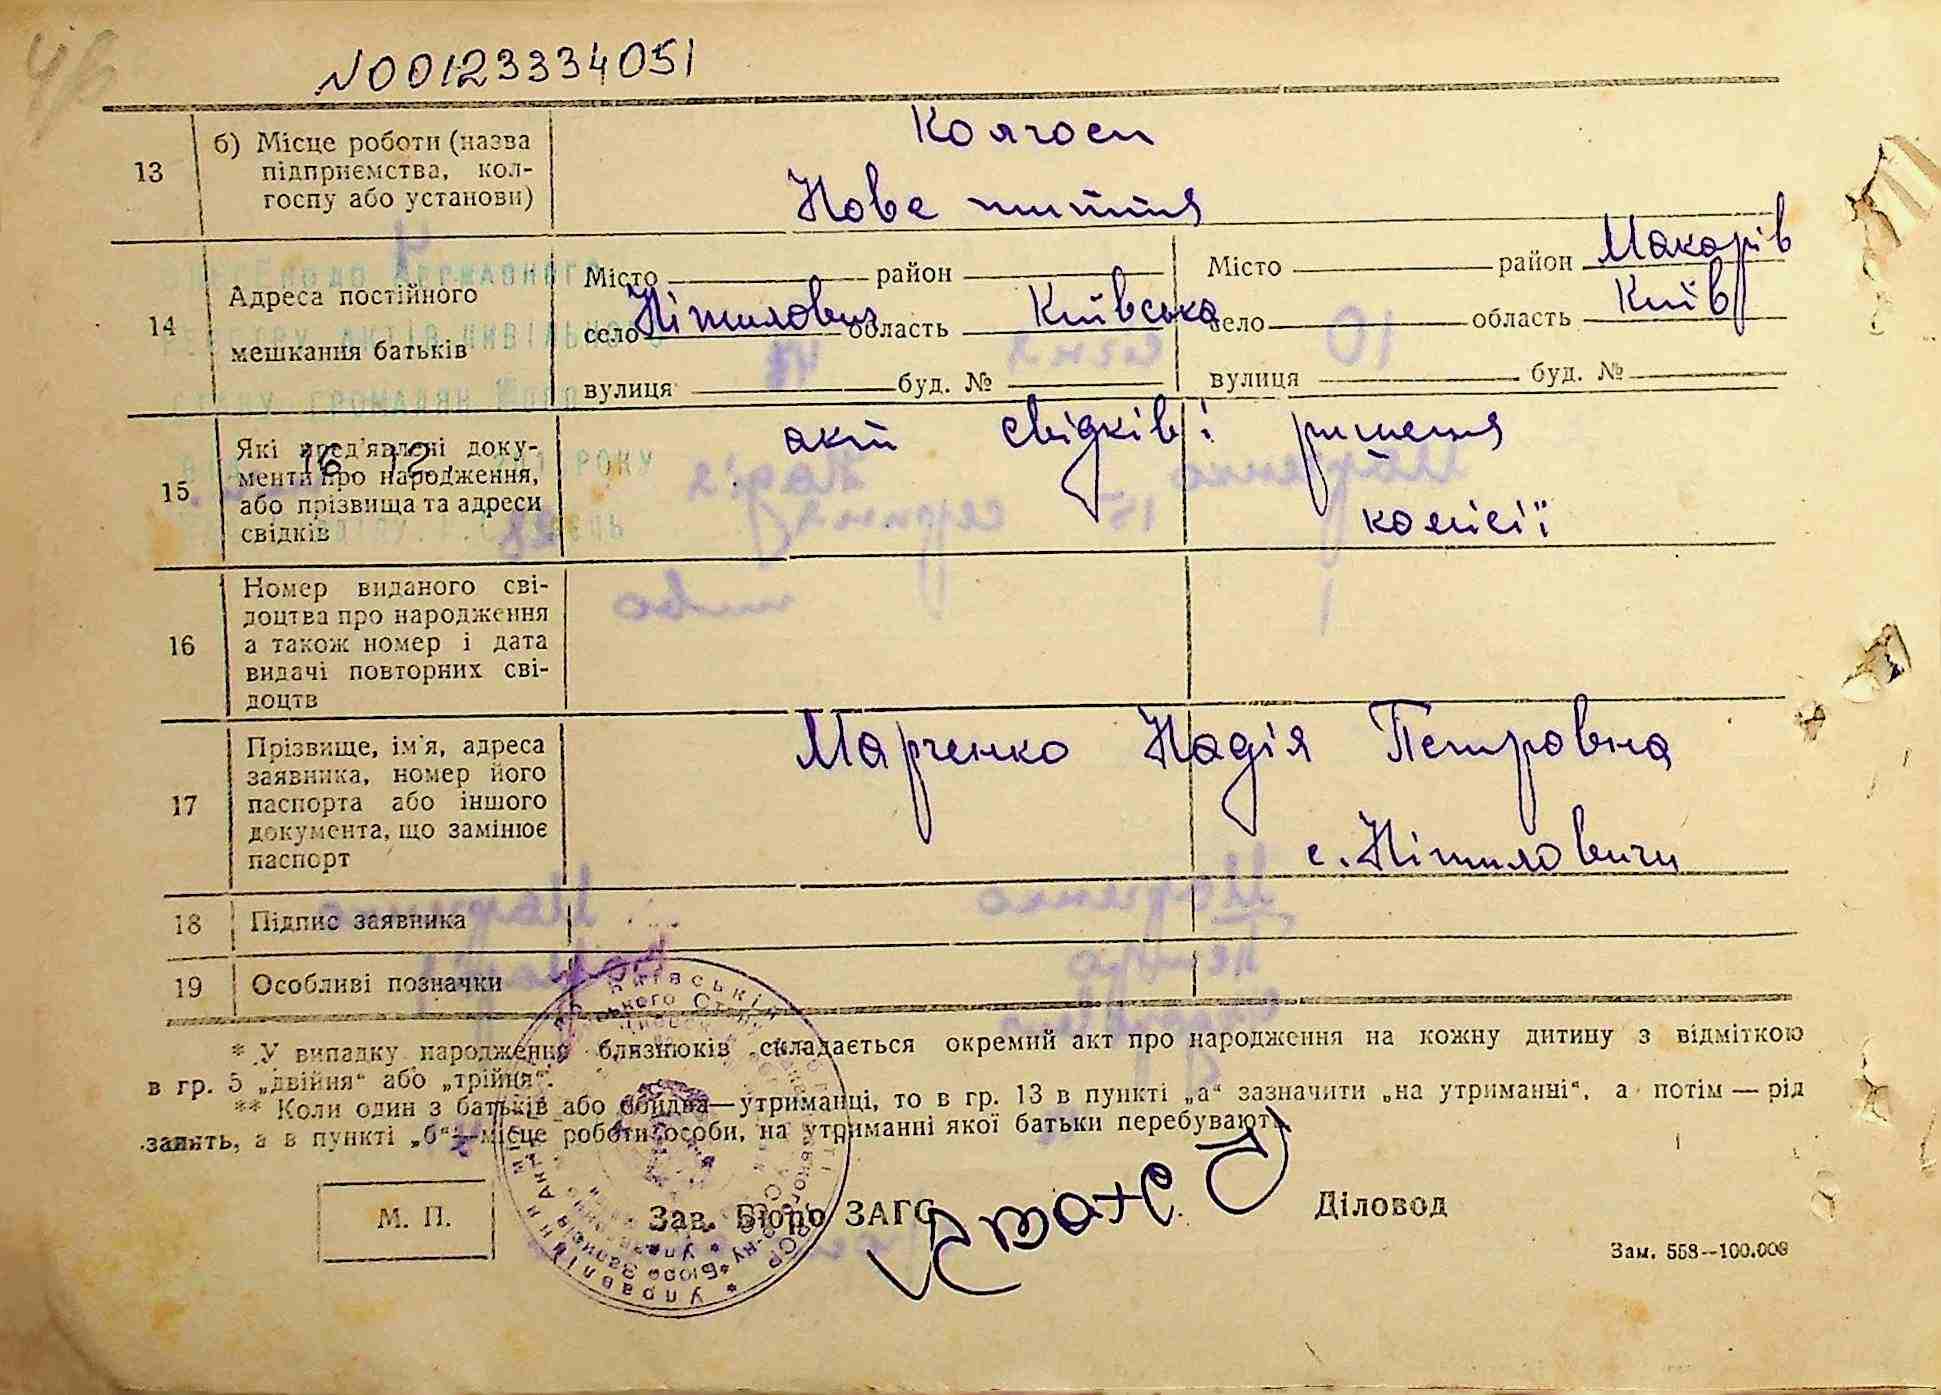 N00123334051
13
б) Місце роботи (назва
підприємства, кол-
госпу або установи)
Колгосп
Нове життя
14
Адреса постійного
мешкання батьків
Місто район
село Ніжиловичі область Київська
вулиця буд. №
Місто район Макарів
село область Київ
вулиця буд. №
15
Які пред'явлені доку-
менти про народження,
або прізвища та адреси
свідків
акт свідків і рішення
комісії
16 12
РОКУ
16
Номер виданого сві-
доцтва про народження
а також номер і дата
видачі повторних сві-
доцтв
17
Прізвище, ім'я, адреса
заявника, номер його
паспорта або іншого
документа, що замінює
паспорт
Марченко Надія Петровна
с. Ніжиловичи
18
Підпис заявника
19
Особливі позначки
* У випадку народження близнюків складається окремий акт про народження на кожну дитину з відміткою
в гр. 5 „двійня“ або „трійня“.
** Коли один з батьків або обидва—утриманці, то в гр. 13 в пункті „а“ зазначити „на утриманні“, а потім — рід
занять, а в пункті „б“—місце роботи особи, на утриманні якої батьки перебувають.
М. П.
Зав. Бюро ЗАГС
Діловод
Зам. 558--100.000